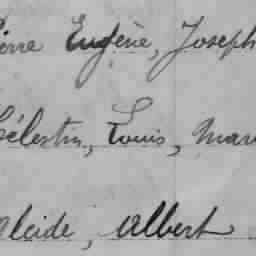 Pierre Eugène, Joseph
Célestin, Louis, Mari
Alcide, Albert